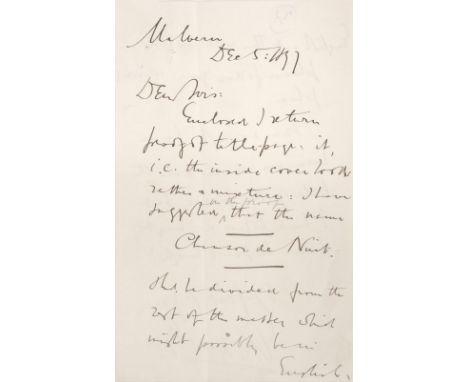 Malvern
Dec 5: 1897
Dear Sirs:
Enclosed I return
proof of title-page: it,
i.e. the inside cover looks
rather a mixture: I have
on the proof
suggested, that the name
Chanson de Nuit.
shd. be divided from the
rest of the matter which
might possibly be in
English.